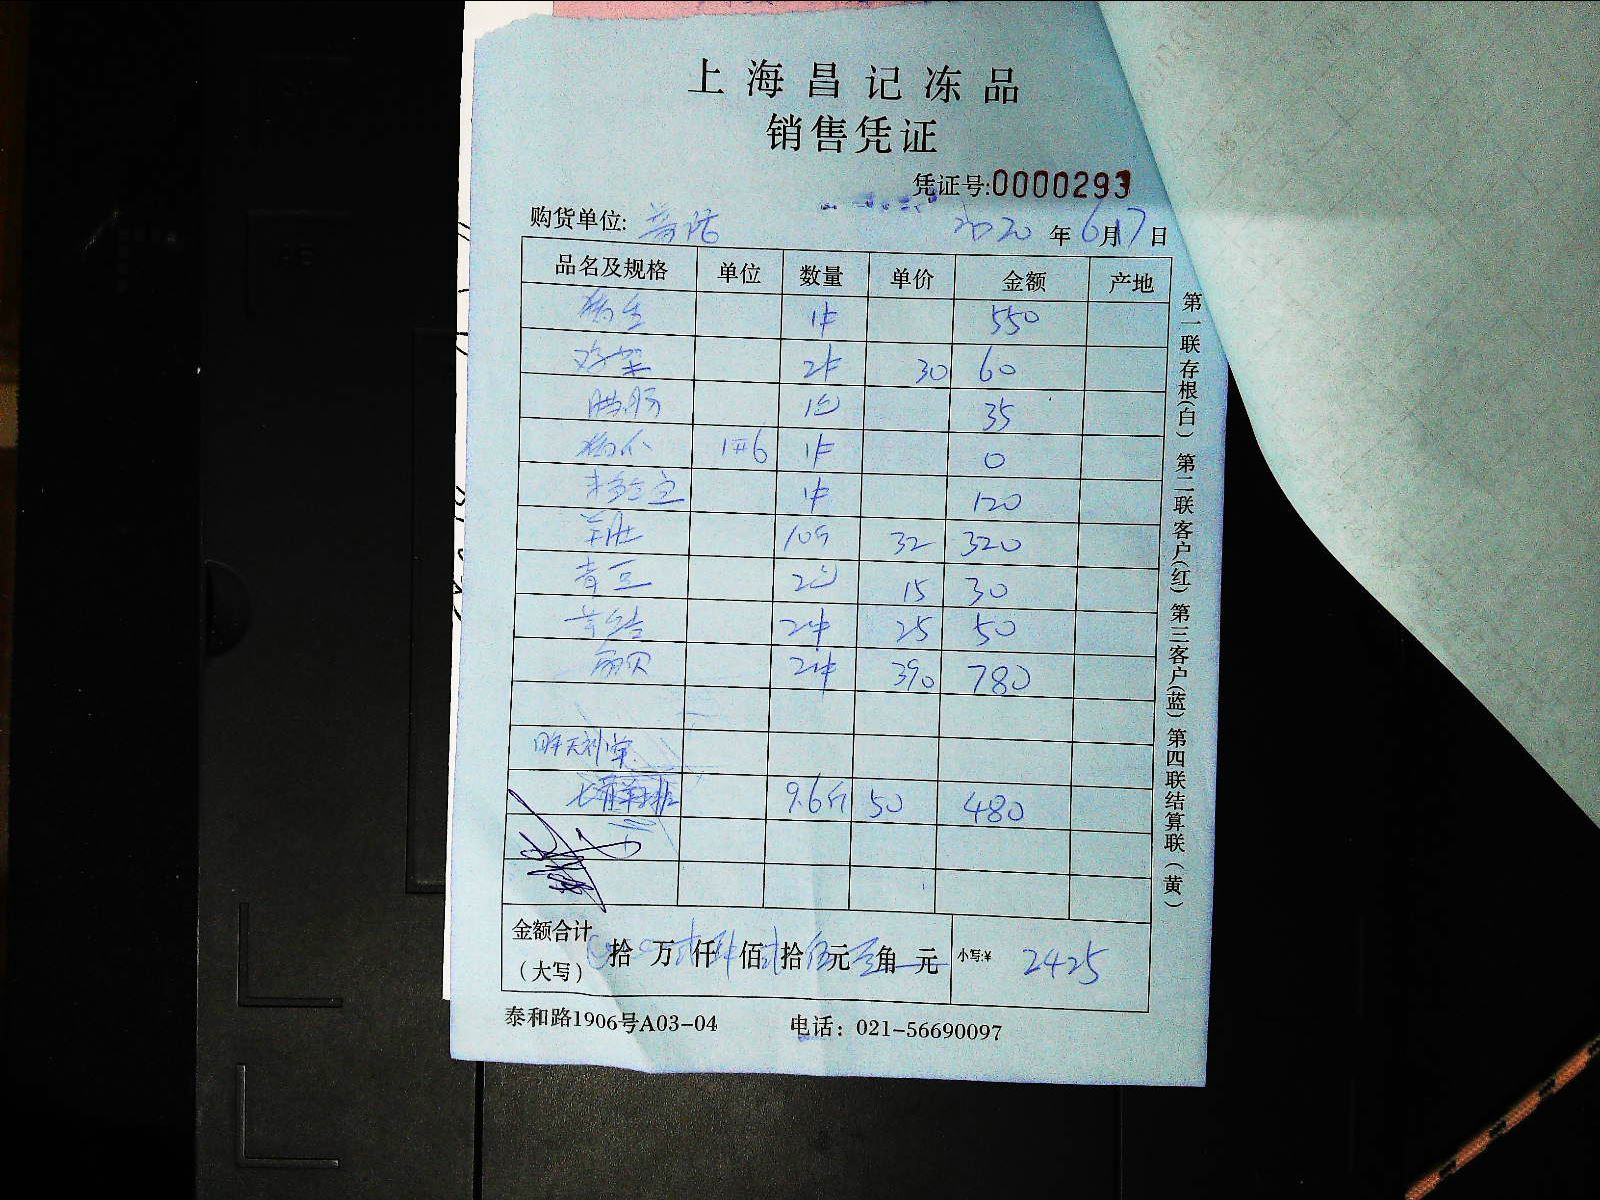 上海昌记冻品
销售凭证
凭证号:0000293
购货单位: 2020 年 6月17日
品名及规格 单位 数量 单价 金额 产地
1件 550
鸡架 2件 30 60
腊肠 1包 35
1件 0
1件 120
羊肚 10斤 32 320
青豆 2包 15 30
2件 25 50
扇贝 2件 390 780
昨天补单
七 羊排 9.6斤 50 480
金额合计
(大写) 拾 万 仟 佰 拾 伍元 角 元 小写:¥ 2425
泰和路1906号A03-04 电话：021-56690097
第一联存根(白) 第二联客户(红) 第三客户(蓝) 第四联结算联(黄)